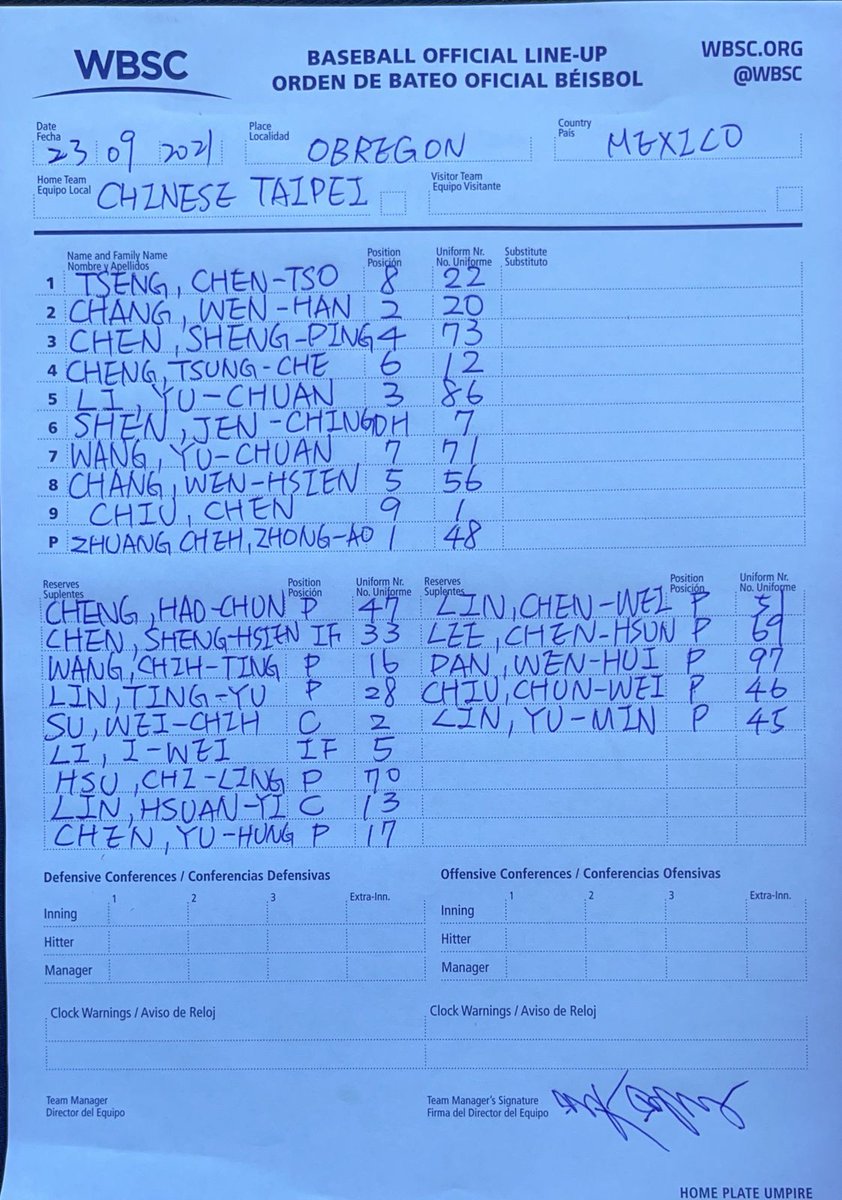 WBSC
BASEBALL OFFICIAL LINE-UP
ORDEN DE BATEO OFICIAL BÉISBOL
WBSC.ORG
@WBSC
Date
Fecha
23 09 2021
Place
Localidad
OBREGON
Country
País
MEXICO
Home Team
Equipo Local
CHINESE TAIPEI
Visitor Team
Equipo Visitante
Name and Family Name
Nombre y Apellidos
Position
Posición
Uniform Nr.
No. Uniforme
Substitute
Substituto
1 TSENG, CHEN-TSO 8 22
2 CHANG, WEN-HAN 2 20
3 CHEN, SHENG-PING 4 73
4 CHENG, TSUNG-CHE 6 12
5 LI, YU-CHUAN 3 86
6 SHEN, JEN-CHING DH 7
7 WANG, YU-CHUAN 7 71
8 CHANG, WEN-HSIEN 5 56
9 CHIU, CHEN 9 1
P ZHUANG CHEH, ZHONG-AO 1 48
Reserves
Suplentes
Position
Posición
Uniform Nr.
No. Uniforme
CHENG, HAO-CHUN P 47
CHEN, SHENG-HSIEN IF 33
WANG, CHIH-TING P 16
LIN, TING-YU P 28
SU, WEI-CHIH C 2
LI, I-WEI IF 5
HSU, CHI-LING P 70
LIN, HSUAN-YI C 13
CHEN, YU-HUNG P 17
Reserves
Suplentes
Position
Posición
Uniform Nr.
No. Uniforme
LIN, CHEN-WEI P 51
LEE, CHEN-HSUN P 69
PAN, WEN-HUI P 97
CHIU, CHUN-WEI P 46
LIN, YU-MIN P 45
Defensive Conferences / Conferencias Defensivas
1 2 3 Extra-Inn.
Inning
Hitter
Manager
Offensive Conferences / Conferencias Ofensivas
1 2 3 Extra-Inn.
Inning
Hitter
Manager
Clock Warnings / Aviso de Reloj
Clock Warnings / Aviso de Reloj
Team Manager
Director del Equipo
Team Manager's Signature
Firma del Director del Equipo
HOME PLATE UMPIRE